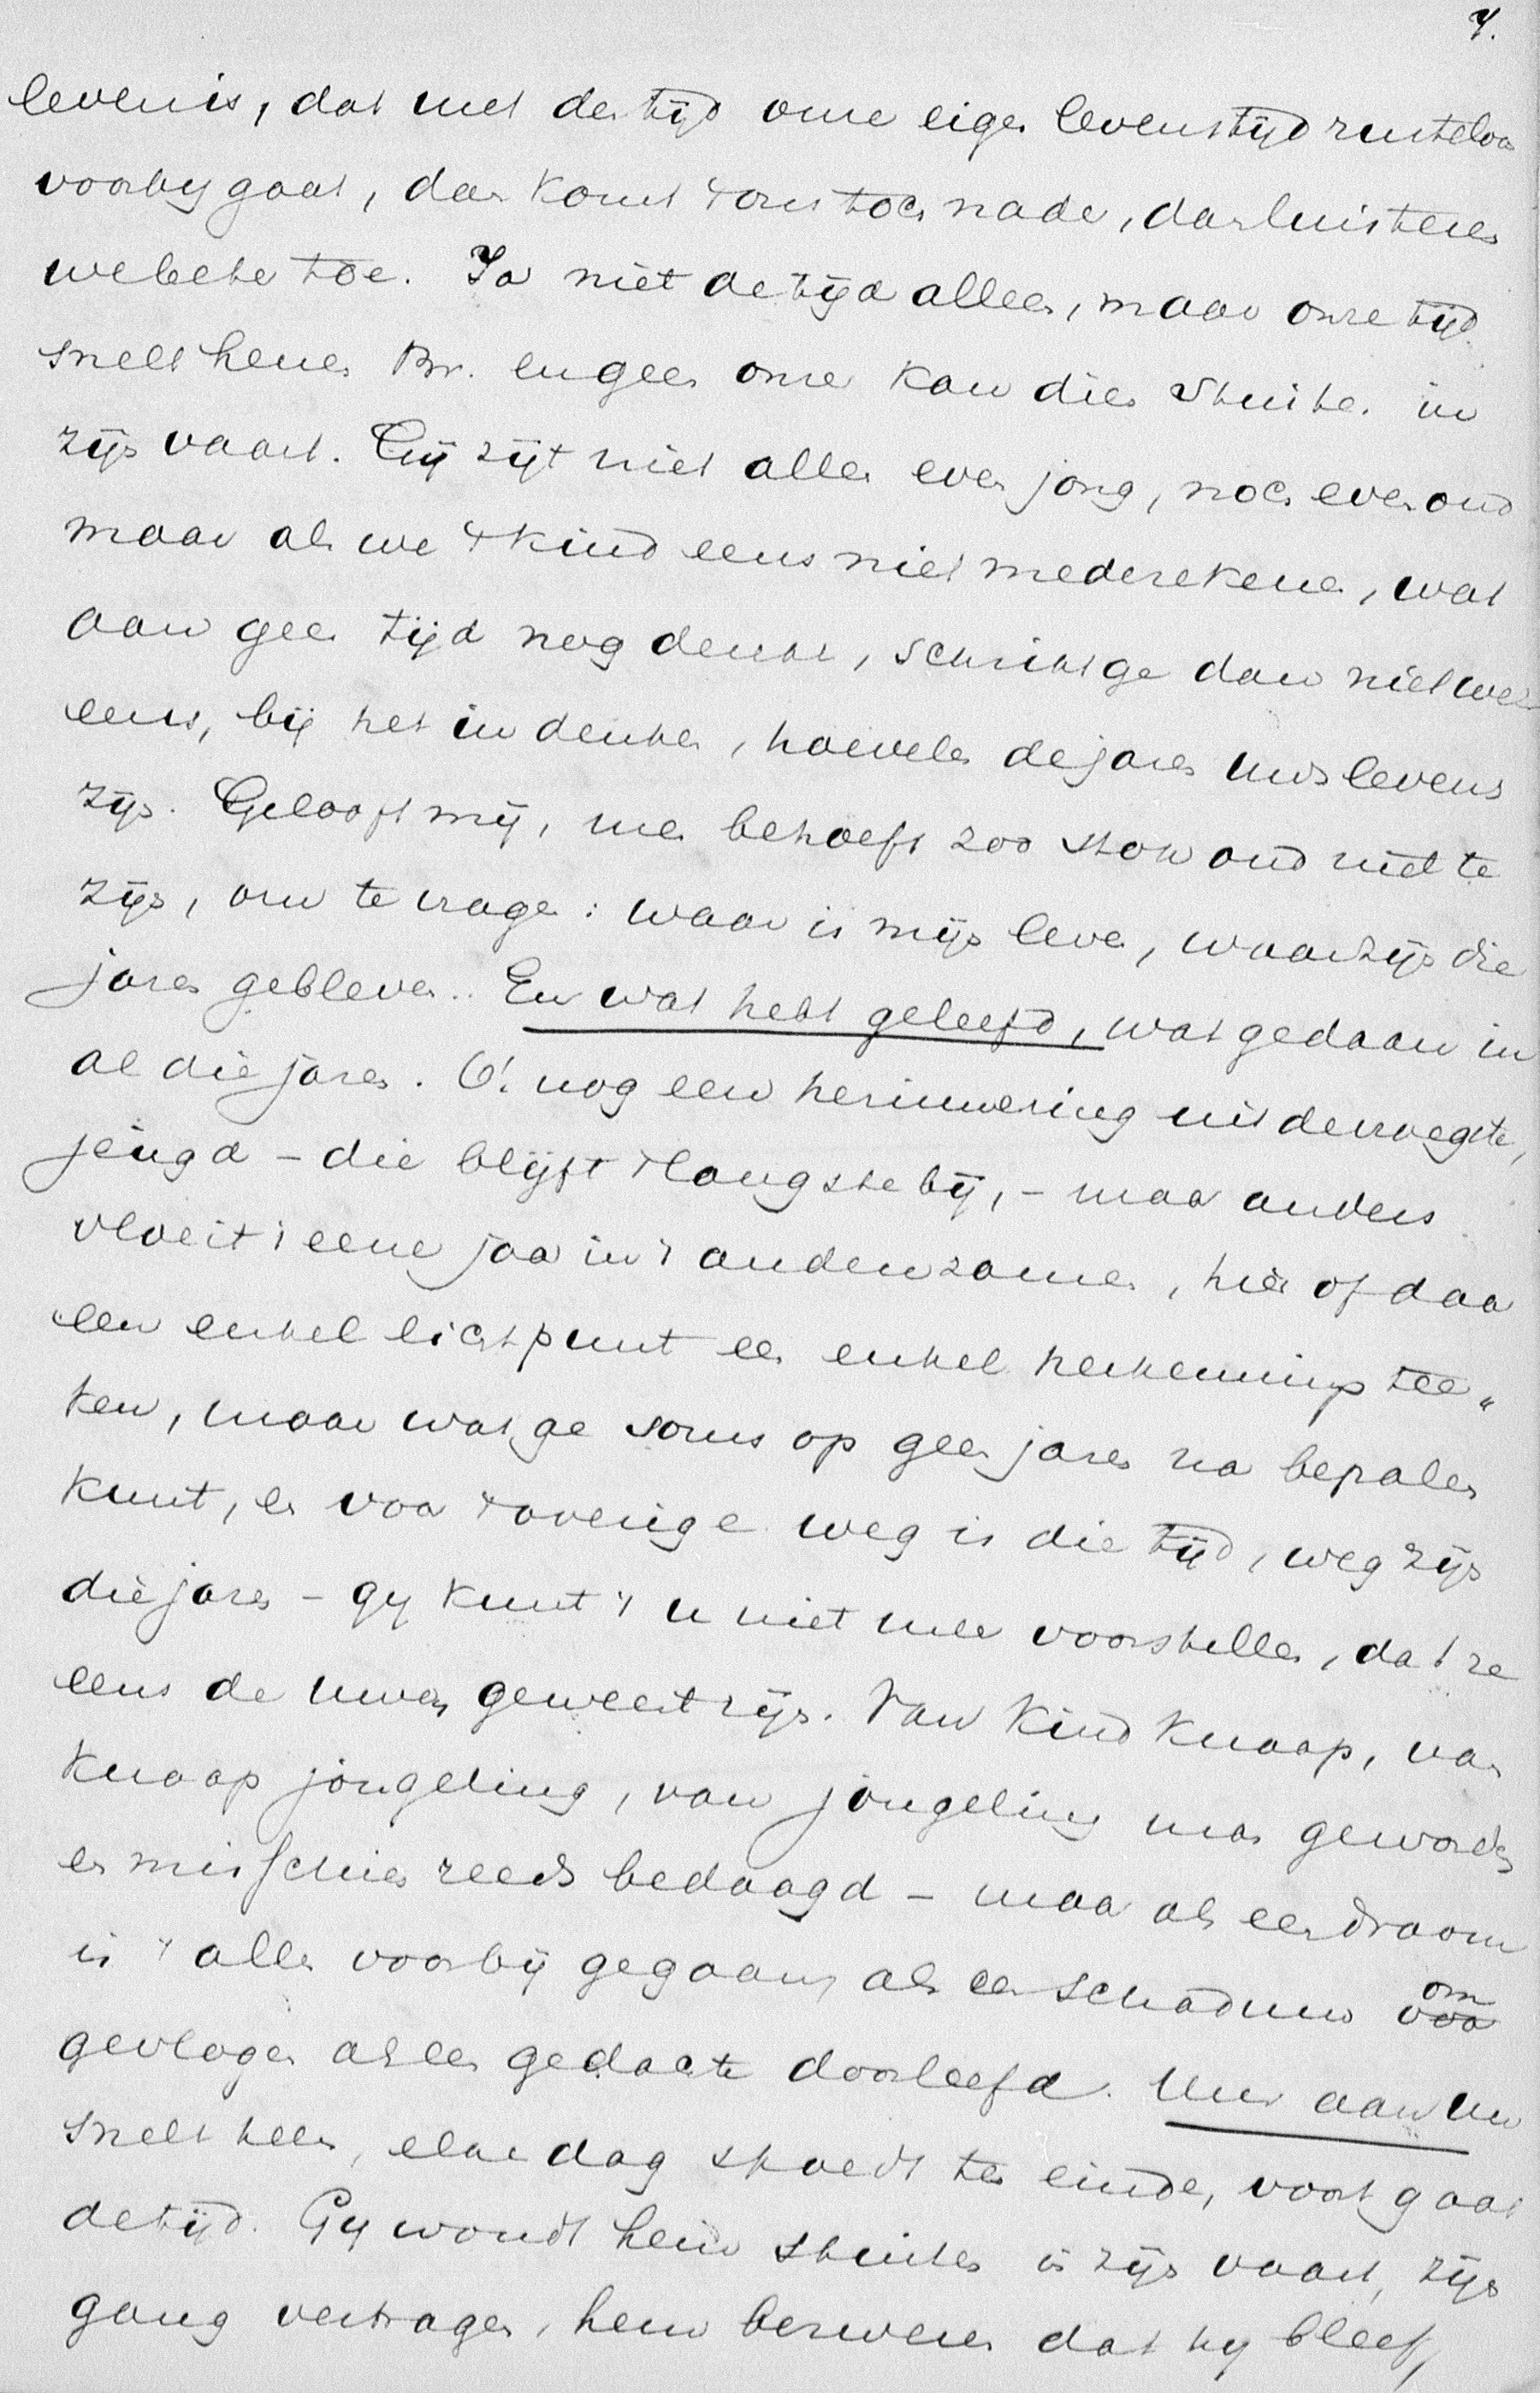 7.
leven is, dat met den tijd onze eigen levenstijd rusteloos
voorby gaat, dan komt 't ons toch nader, dan luisteren
we beter toe. Ja niet de tijd alleen, maar onze tijd
snelt henen Br. en geen onzer kan dien stuiten in
zijn vaart. Gij zijt niet allen even jong, noch even oud
maar als we 't kind eens niet mederekenen, wat
aan geen tijd nog denkt, schrikt ge dan niet wel
eens, bij het indenken, hoevelen de jaren uws levens
zijn. Gelooft mij, men behoeft zoo stok oud niet te
zijn, om te vragen: waar is mijn leven, waar zijn die
jaren gebleven.. En wat hebt geleefd, wat gedaan in
al die jaren. O! nog een herinnering uit de vroegste,
jeugd – die blijft 't langste bij, – maar anders
vloeit 't eene jaar in 't ander zamen, hier of daar
een enkel lichtpunt een enkel herkennings tee„
ken, maar wat ge soms op geen jaren na bepalen
kunt, en voor 't overige weg is die tijd, weg zijn
die jaren – gy kunt 't u niet meer voorstellen, dat ze
eens de uwen geweest zijn. Van kind knaap, van
knaap jongeling, van jongeling man geworden
en misschien reeds bedaagd – maar als een droom
is 't alles voorbij gegaan, als een schaduw voor om
gevlogen als een gedachte doorleefd. Uur aan uur
snelt heen, elke dag spoedt ten einde, voort gaat
de tijd. Gy woudt hem stuiten in zijn vaart, zijn
gang vertragen, hem bezweren dat hy bleef,